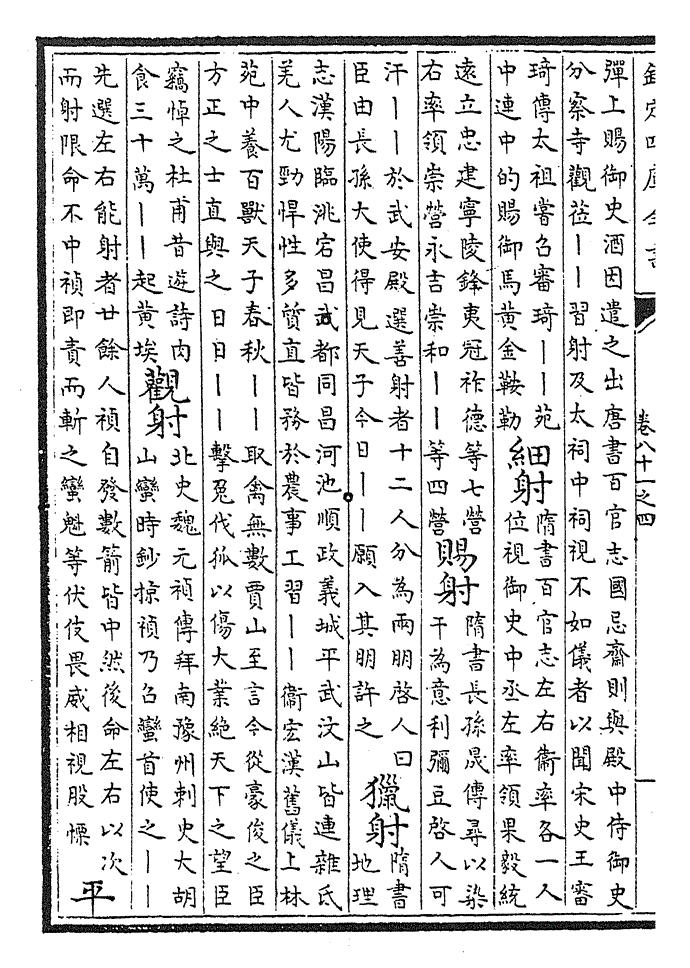 欽定四庫全書 卷八十一之四
彈上賜御史酒因遣之出唐書百官志國忌齋則與殿中侍御史
分察寺觀蒞丨丨習射及太祠中祠視不如儀者以聞宋史王審
琦傳太祖嘗召審琦丨丨苑
中連中的賜御馬黃金鞍勒
細射
隋書百官志左右衞率各一人
位視御史中丞左率領果毅統
遠立忠建寧陵鋒夷冠祚德等七營
右率領崇營永吉崇和丨丨等四營
賜射
隋書長孫晟傳尋以染
干為意利彌豆啓人可
汗丨丨於武安殿選善射者十二人分為兩朋啓人曰
臣由長孫大使得見天子今日丨丨願入其朋許之
獵射
隋書
地理
志漢陽臨洮宕昌武都同昌河池順政義城平武汶山皆連雜氐
羌人尤勁悍性多質直皆務於農事工習丨丨衞宏漢舊儀上林
苑中養百獸天子春秋丨丨取禽無數賈山至言今從豪俊之臣
方正之士直與之日日丨丨擊兎伐狐以傷大業絕天下之望臣
竊悼之杜甫昔遊詩肉
食三十萬丨丨起黃埃
觀射
北史魏元禎傳拜南豫州刺史大胡
山蠻時鈔掠禎乃召蠻首使之丨丨
先選左右能射者廿餘人禎自發數箭皆中然後命左右以次
而射限命不中禎即責而斬之蠻魁等伏伎畏威相視股慄
平